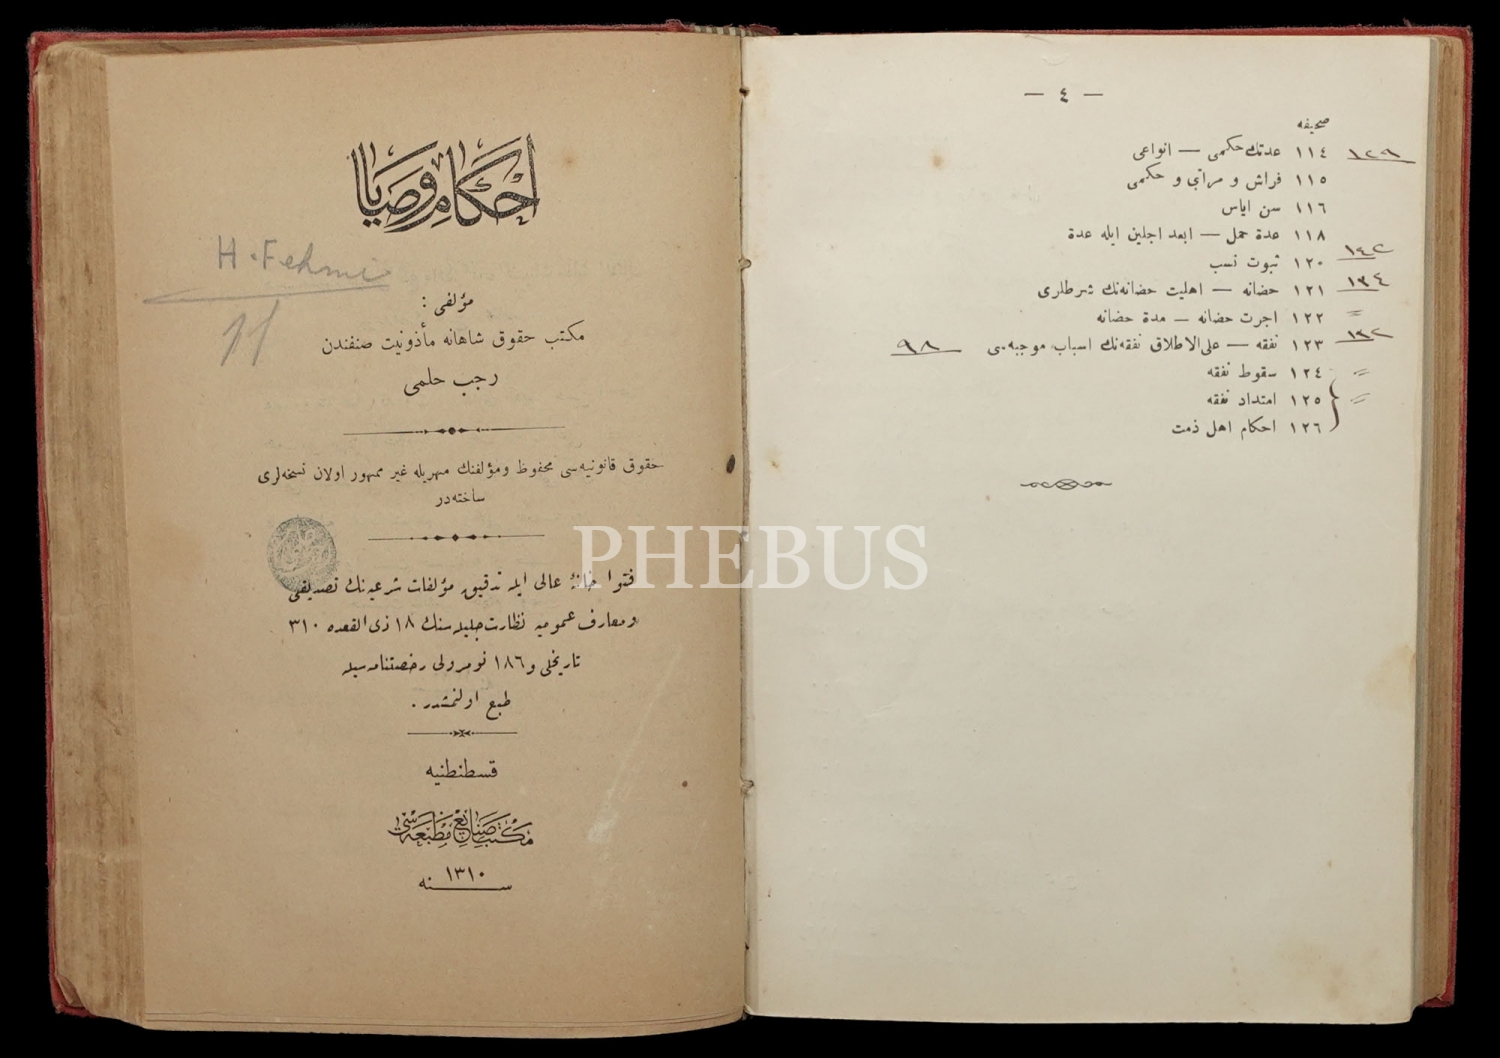 احكام وصايا
H. Fehmi
مؤلفى :
مكتب حقوق شاهانه مأذونيت صنفندن
رجب حلمى
حقوق قانونيه‌سى محفوظ ومؤلفنك مهريله غير ممهور اولان نسخه‌لرى
ساخته‌در
فتوا خانهٔ عالى ايله تدقيق مؤلفات شرعيه‌نك تصديقى
ومعارف عموميه نظارت جليله‌سنك ١٨ ذى القعده ٣١٠
تاريخلى و ١٨٦ نومرولى رخصتنامه‌سيله
طبع اولنمشدر .
قسطنطنيه
مكتب صنايع مطبعه‌سى
سنه ١٣١٠
— ٤ —
صحيفه
١١٤ عدتك حكمى — انواعى ١٢٩
١١٥ فراش و مراتبى و حكمى
١١٦ سن اياس
١١٨ عدة حمل — ابعد اجلين ايله عدة
١٢٠ ثبوت نسب ١٤٢
١٢١ حضانه — اهليت حضانه‌نك شرطلرى ١٣٤
١٢٢ اجرت حضانه — مدة حضانه
١٢٣ نفقه — على الاطلاق نفقه‌نك اسباب موجبه‌سى ٩٨ ١٣٢
١٢٤ سقوط نفقه
١٢٥ امتداد نفقه
١٢٦ احكام اهل ذمت
PHEBUS